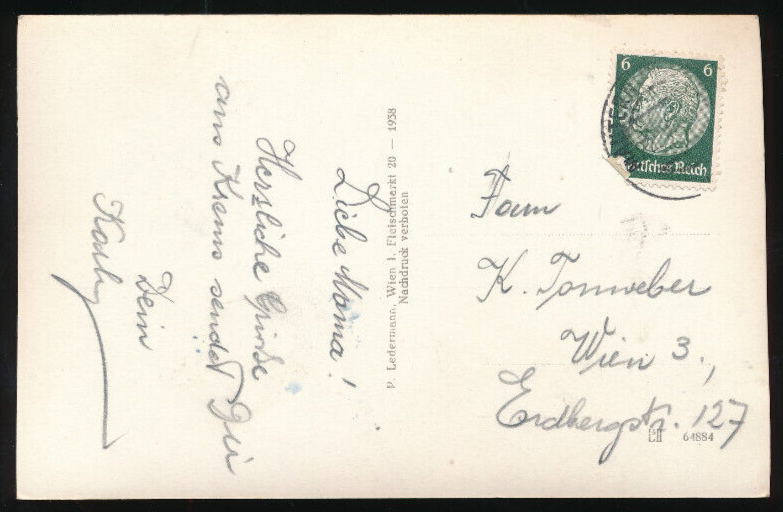 Liebe Mama!
Herzliche Grüsse
aus Krems sendet Dir
Dein
Karli
P. Ledermann, Wien I, Fleischmarkt 20 — 1938
Nachdruck verboten
6 6
Deutsches Reich
Frau
K. Tonweber
Wien 3.,
Erdbergstr. 127
64884